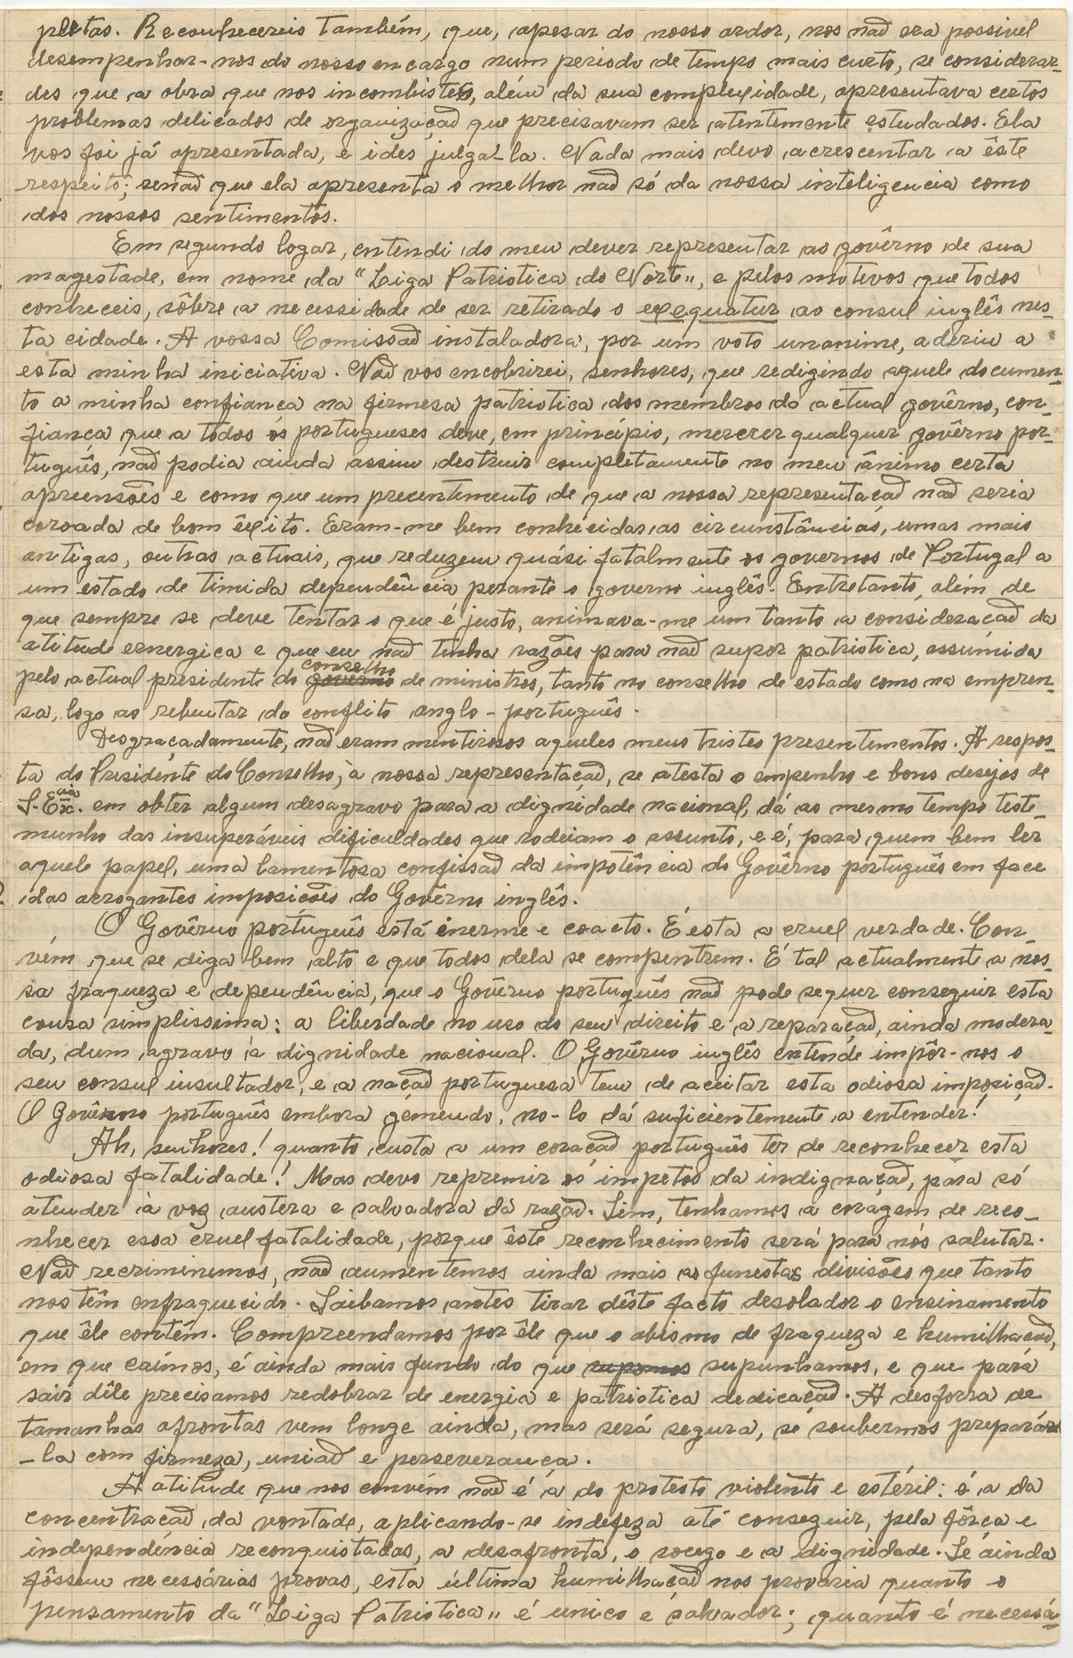 pletas. Reconhecereis também, que, apesar do nosso ardor, nos não era possivel
desempenhar-nos do nosso encargo num periodo de tempo mais curto, se considerar-
des que a obra que nos incombistes, além da sua complexidade, apresentava certos
problemas delicados de organização que precisavam ser atentimente estudados. Ela
vos foi já apresentada, e ides julga-la. Nada mais devo acrescentar a êste
respeito; senão que ela apresenta o melhor não só da nossa inteligencia como
dos nossos sentimentos.
Em segundo logar, entendi do meu dever representar ao govêrno de sua
magestade, em nome da "Liga Patriotica do Norte", e pelos motivos que todos
conheceis, sôbre a necessidade de ser retirado o exequatur ao consul inglês nes-
ta cidade. A vossa Comissão instaladora, por um voto unanime, aderiu a
esta minha iniciativa. Não vos encobrirei, senhores, que redigindo aquele documen-
to a minha confiança na firmesa patriotica dos membros do actual govêrno, con-
fiança que a todos os portugueses deve, em princípio, merecer qualquer govêrno por-
tuguês, não podia ainda assim destruir completamente no meu ânimo certa
apreensões e como que um precentimento de que a nossa representação não seria
coroada de bom êxito. Eram-me bem conhecidas as circunstâncias, umas mais
antigas, outras actuais, que reduzem quási fatalmente os governos de Portugal a
um estado de timida dependência perante o governo inglês. Entretanto, além de
que sempre se deve tentar o que é justo, animava-me um tanto a consideração da
atitude eenergica e que eu não tinha razões para não supor patriotica, assumida
pelo actual presidente do governo conselho de ministros, tanto no conselho de estado como na empren-
sa, logo ao rebentar do conflito anglo-português.
Desgraçadamente, não eram mentirosos aqueles meus tristes presentimentos. A respos-
ta do Presidente do Conselho, à nossa representação, se atesta o empenho e bons desejos de
S. Exª. em obter algum desagravo para a dignidade nacional, dá ao mesmo tempo teste-
munho das insuperáveis dificuldades que rodeiam o assunto, e é, para quem bem ler
aquele papel, uma lamentosa confissão da impotência do Govêrno português em face
das arrogantes imposicões do Govêrno inglês.
O Govêrno português está inerme e coacto. É esta a cruel verdade. Con-
vém que se diga bem alto e que todos dela se compentrem. É tal actualmente a nos-
sa fraqueza e dependência, que o Govêrno português não pode sequer conseguir esta
cousa simplissima: a liberdade no uso do seu direito e a reparação, ainda modera-
da, dum agravo à dignidade nacional. O Govêrno inglês entende impôr-nos o
seu consul insultador, e a nação portuguesa tem de aceitar esta odiosa imposição.
O Govêrno português embora gemendo, no-lo dá suficientemente a entender!
Ah, senhores! quanto custa a um coração português ter de reconhecer esta
odiosa fatalidade! Mas devo reprimir os impetos da indignação, para só
atender à voz austera e salvadora da razão. Sim, tenhamos a coragem de reco-
nhecer essa cruel fatalidade, porque êste reconhecimento será para nós salutar.
Não recriminemos, não aumentemos ainda mais as funestas divisões que tanto
nos têm enfraquecido. Saibamos antes tirar dêste facto desolador o ensinamento
que êle contêm. Compreendamos por êle que o abismo de fraqueza e humilhação,
em que caímos, é ainda mais fundo do que supomos supunhamos, e que para
sair dêle precisamos redobrar de energia e patriotica dedicação. A desforra de
tamanhas afrontas vem longe ainda, mas será segura, se soubermos prepará-
-la com firmeza, união e perseverança.
A atitude que nos convém não é a do protesto violento e estéril: é a da
concentração da vontade, aplicando-se indefeza até conseguir, pela fôrça e
independência reconquistadas, a desafronta, o socego e a dignidade. Se ainda
fôssem necessárias provas, esta última humilhação nos provaria quanto o
pensamento da "Liga Patriotica" é unico e salvador; quanto é necessá-